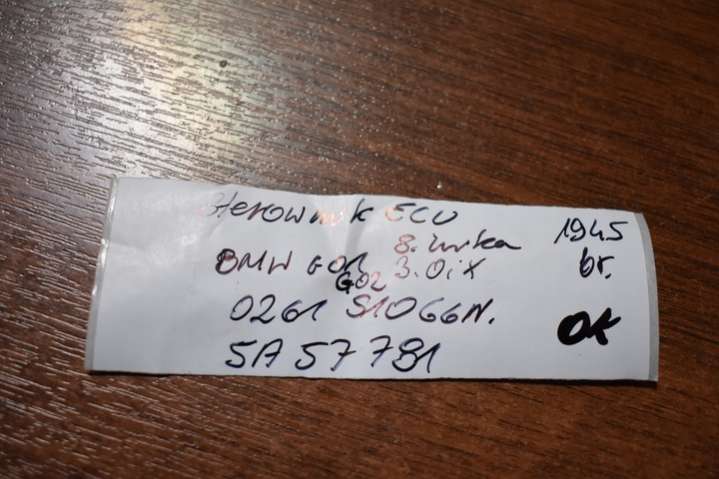 Sterownik ECU
BMW G01 3.0iX
G02
0261 S10G6N.
5A57791
1945
br.
OK